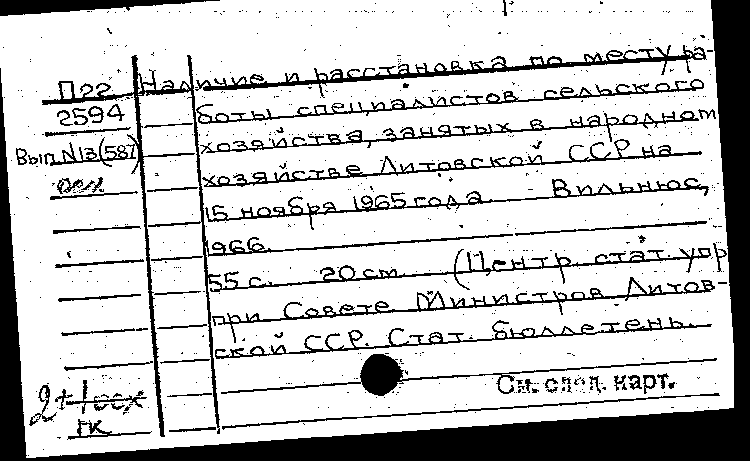 П22 Наличие и расстановка по месту ра-
2594 боты специалистов сельского
Вып.N13(587) хозяйства, занятых в народном
хозяйстве Литовской ССР на
15 ноября 1965 года. Вильнюс,
1966.
55 с. 20 см. (Центр. стат. упр
при Совете Министров Литов-
ской ССР. Стат. бюллетень.
См. след. карт.
2+1осх
гк